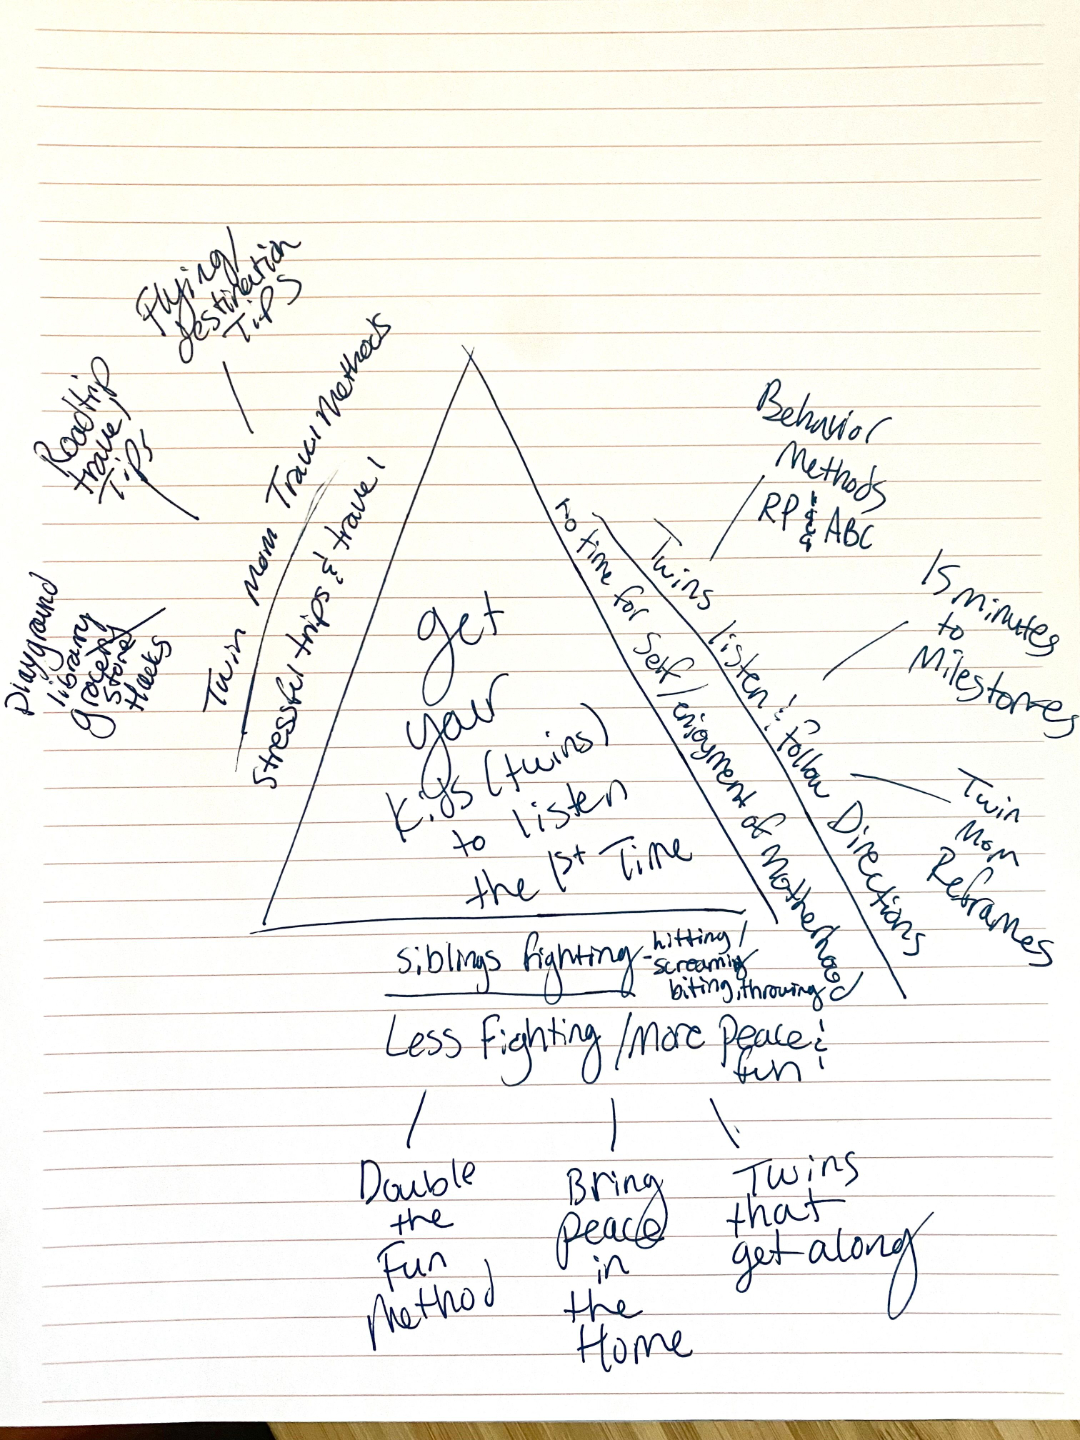 Flying/
Destination
Tips
Roadtrip
travel
Tips
Playground
library
grocery
store
Hacks
Twin Mom Travel Methods
Stressful trips & travel
get
your
Kids (twins)
to listen
the 1st Time
No time for Self/enjoyment of Motherhood
Twins listen & follow Directions
Behavior
Methods
RP & ABC
15 minutes
to
Milestones
Twin
Mom
Reframes
siblings fighting - hitting/
screaming
biting, throwing
Less Fighting / More Peace &
fun!
Double
the
Fun
Method
Bring
peace
in
the
Home
Twins
that
get along